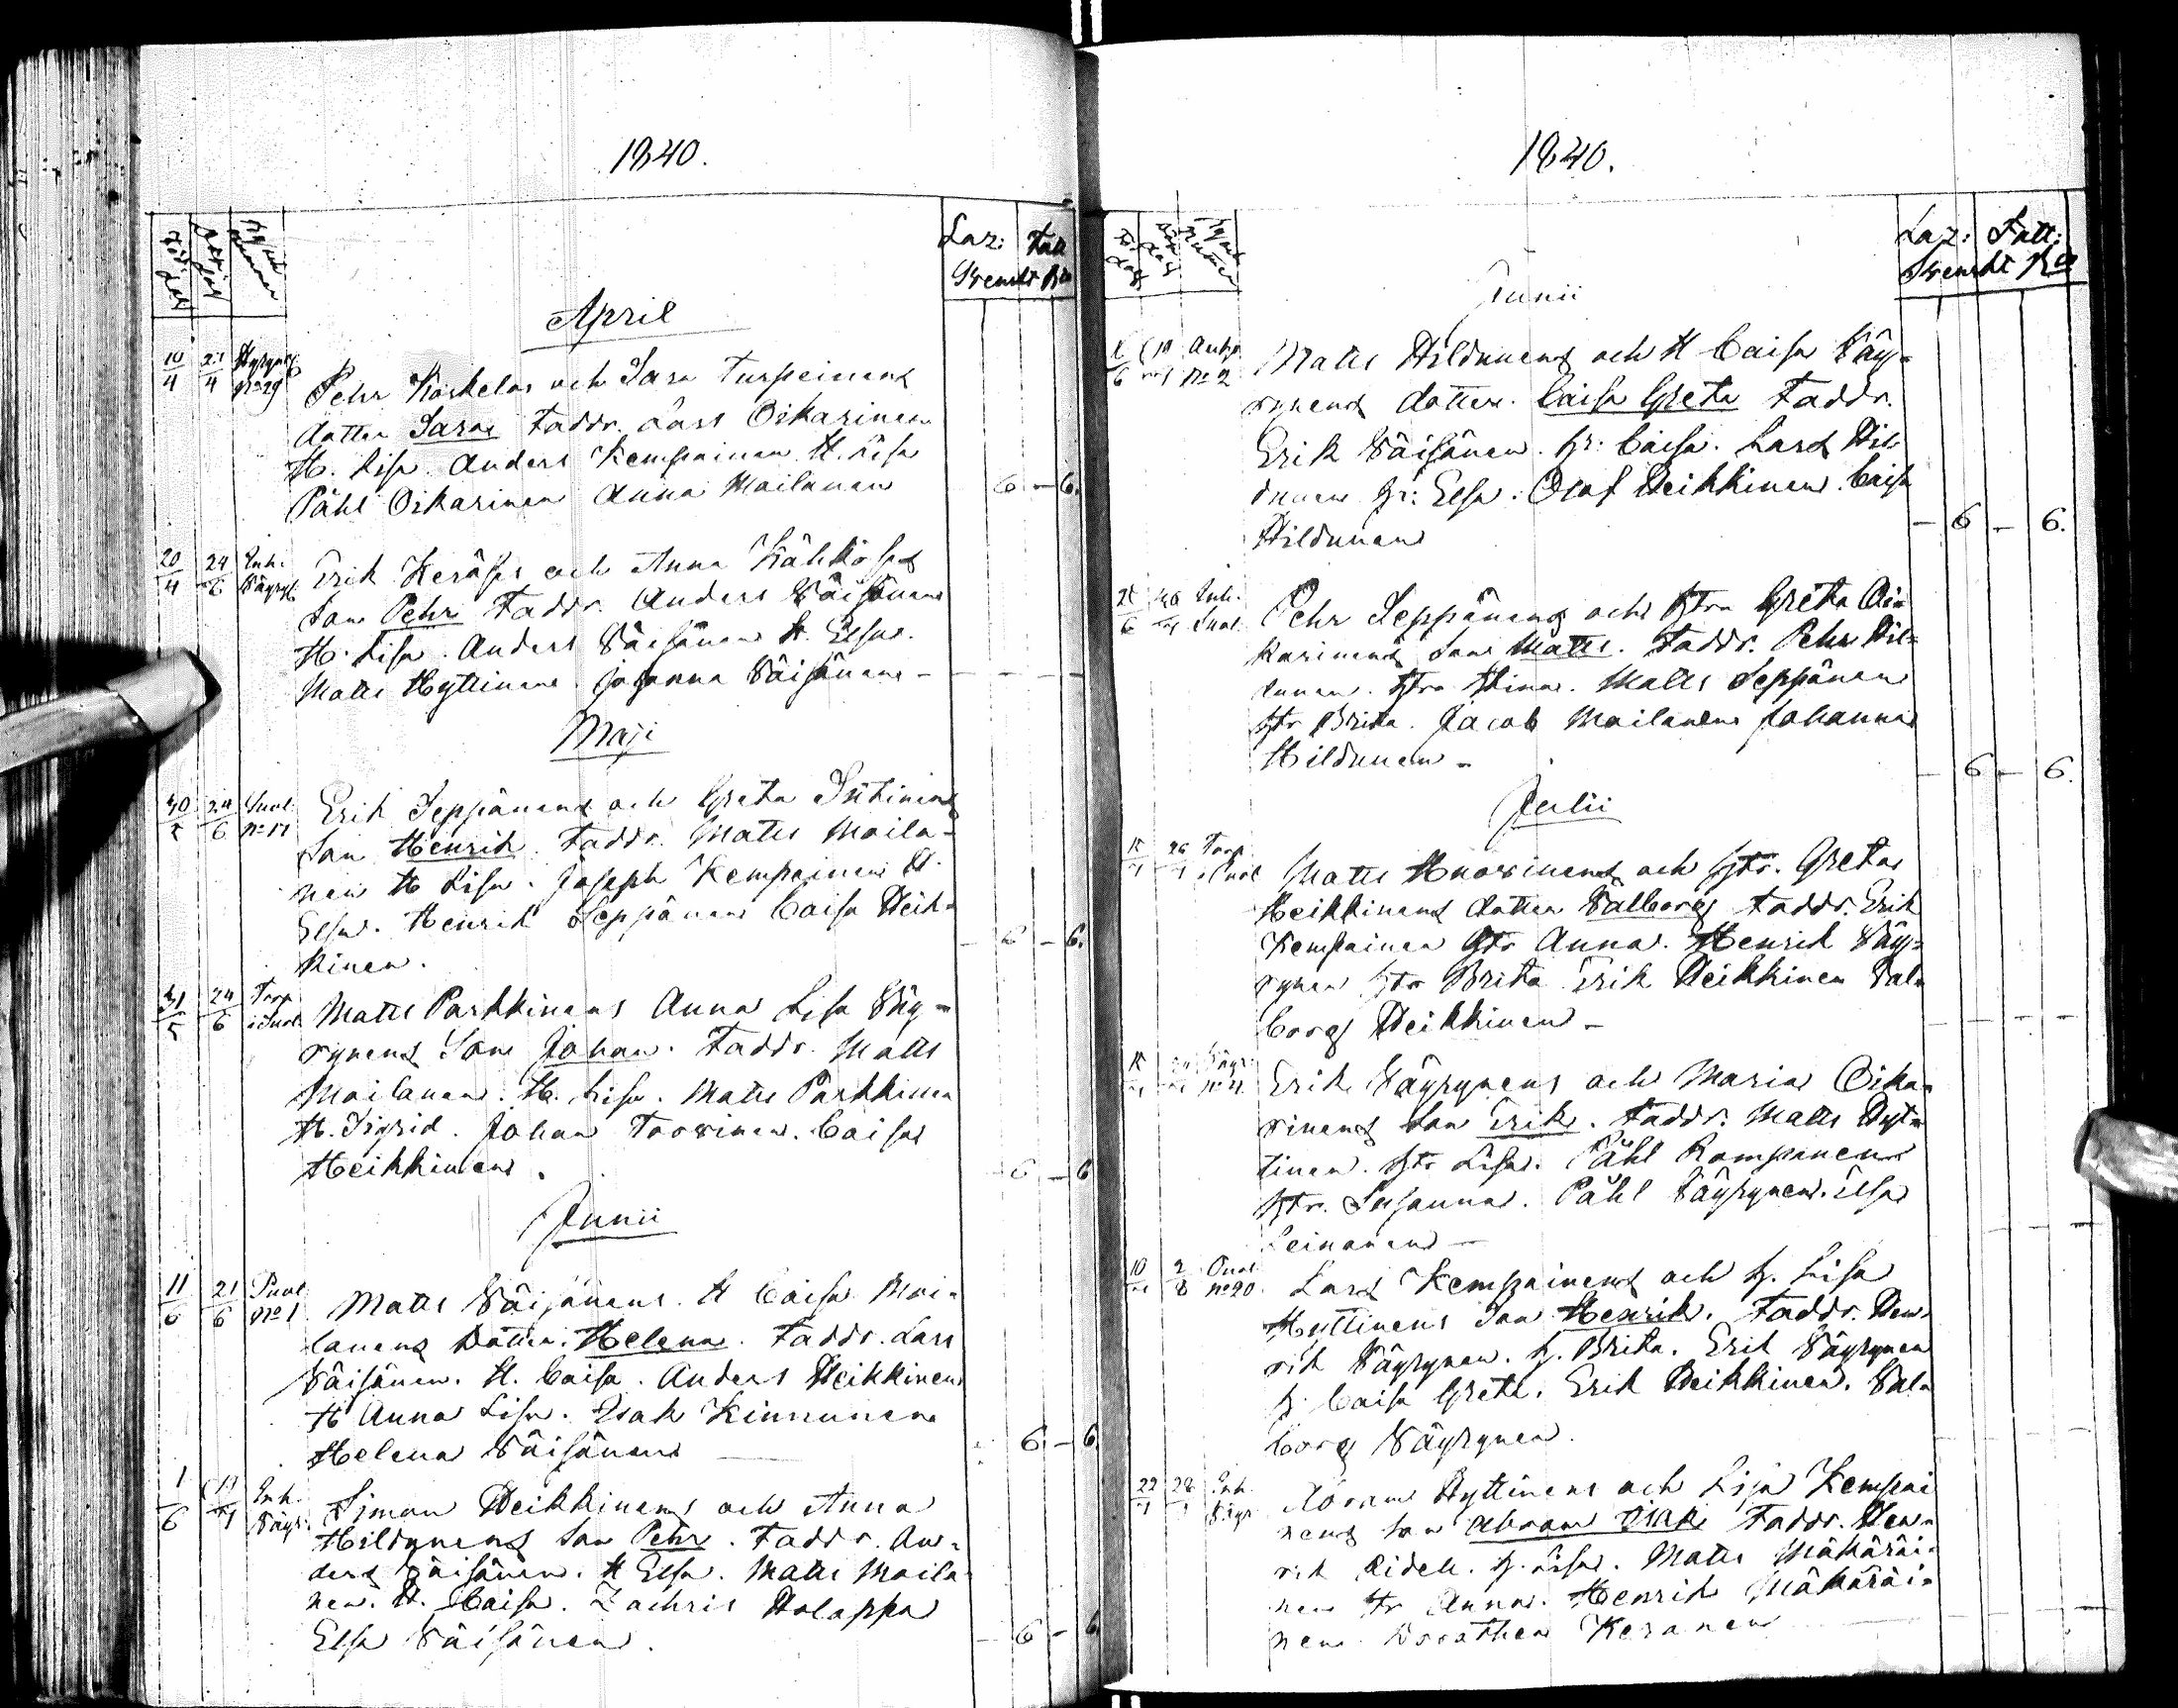 1840.
Laz: Fatt
Svenskt Rco
April
10/4 Hyryns. No 29 Pehr Koskelas och Sara Turpeinens
dotter Sara Faddr. Lars Oikarinen
H. Lisa. Anders Kempainen H. Lisa
Påhl Oikarinen Anna Mailanen
6 – 6.
20/4 24/6 Inh. Väyryl. Erik Keräses och Anna Kähköses
son Pehr Faddr. Anders Väisänen
H. Lisa. Anders Väisänen H. Elsa.
Matts Hyttinen. Johanna Väisänen –
Maji
24/6 Puol. No 17 Erik Seppänens och Greta
son Henrik. Faddr. Matts Maila-
nen H Lisa. Joseph Kempainen H.
Elsa. Henrik Seppänen Caisa Heik-
kinen.
– 6 – 6.
31/5 24/6 Torp. i Puol. Matts Parkkinens Anna Lisa Väy-
rynens Son Johan. Faddr. Matts
Mailanen. H. Lisa. Matts Parkkinen
H. Sigrid. Johan Toorinen. Caisa
Heikkinen.
– 6 – 6
Junii
11/6 21/6 Puol No 1 Matts Väisänens. H Caisa Mai-
lanens Dotter. Helena. Faddr. Lars
Väisänen. H. Caisa. Anders Heikkinen
H Anna Lisa. Isak Kinnunen
Helena Väisänen
6. – 6.
1/6 Inh. Väyr. Simon Heikkinens och Anna
Hildunens son Pehr. Faddr. An-
ders Väisänen. H Elsa. Matts Maila-
nen. H. Caisa. Zachris Holappa
Elsa Väisänen.
– 6 – 6
1840.
Laz: Fatt:
Svenskt Rco
Junii
No 2 Matts Hildunens och H Caisa Väy-
rynens dotter. Caisa Greta Faddr.
Erik Väisänen. H: Caisa. Lars Hil-
dunen H: Elsa. Olof Heikkinen. Caisa
Hildunen
– 6 – 6.
Inh. Puol. Pehr Seppänens och Htr Greta Oi-
karinens Son Matts. Faddr. Pehr Hil-
dunen. Htr Stina. Matts Seppänen
Htr Brita. Jacob Mailanen Johanna
Hildunen –
– 6 – 6.
Julii
Torp. i Puol Matts Huovinens och Htr. Greta
Heikkinens dotter Valborg Faddr. Erik
Kempainen Htr Anna. Henrik Väy-
rynen Htr Brita Erik Heikkinen Val-
borg Heikkinen –
Väyr. Erik Väyrynens och Maria Oika-
rinens son Erik. Faddr. Matts Hyt-
tinen. Htr Lisa. Påhl Romppanen
Htr. Susanna. Påhl Väyrynen. Elsa
Leinonen –
2/8 No 20. Lars Kempainens och H. Lisa
Hyttinens son Henrik. Faddr. Hen-
rik Väyrynen. H. Brita. Erik Väyrynen
H. Caisa Greta. Erik Heikkinen. Val-
borg Väyrynen.
Inh. Väyr. Abram Hyttinens och Lisa Kempai
nens son Abram Isak Faddr. Hen-
rik H. Lisa. Matts Mäkäräi-
nen Htr Anna. Henrik Mäkäräi-
nen. Dorothea Keränen